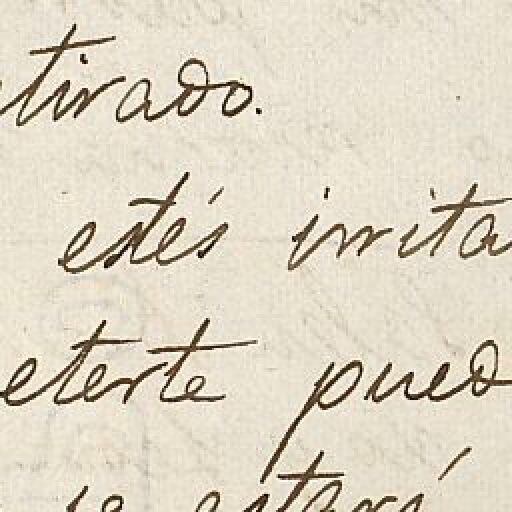 tirado.
estés irrita
eterte pued
se estará